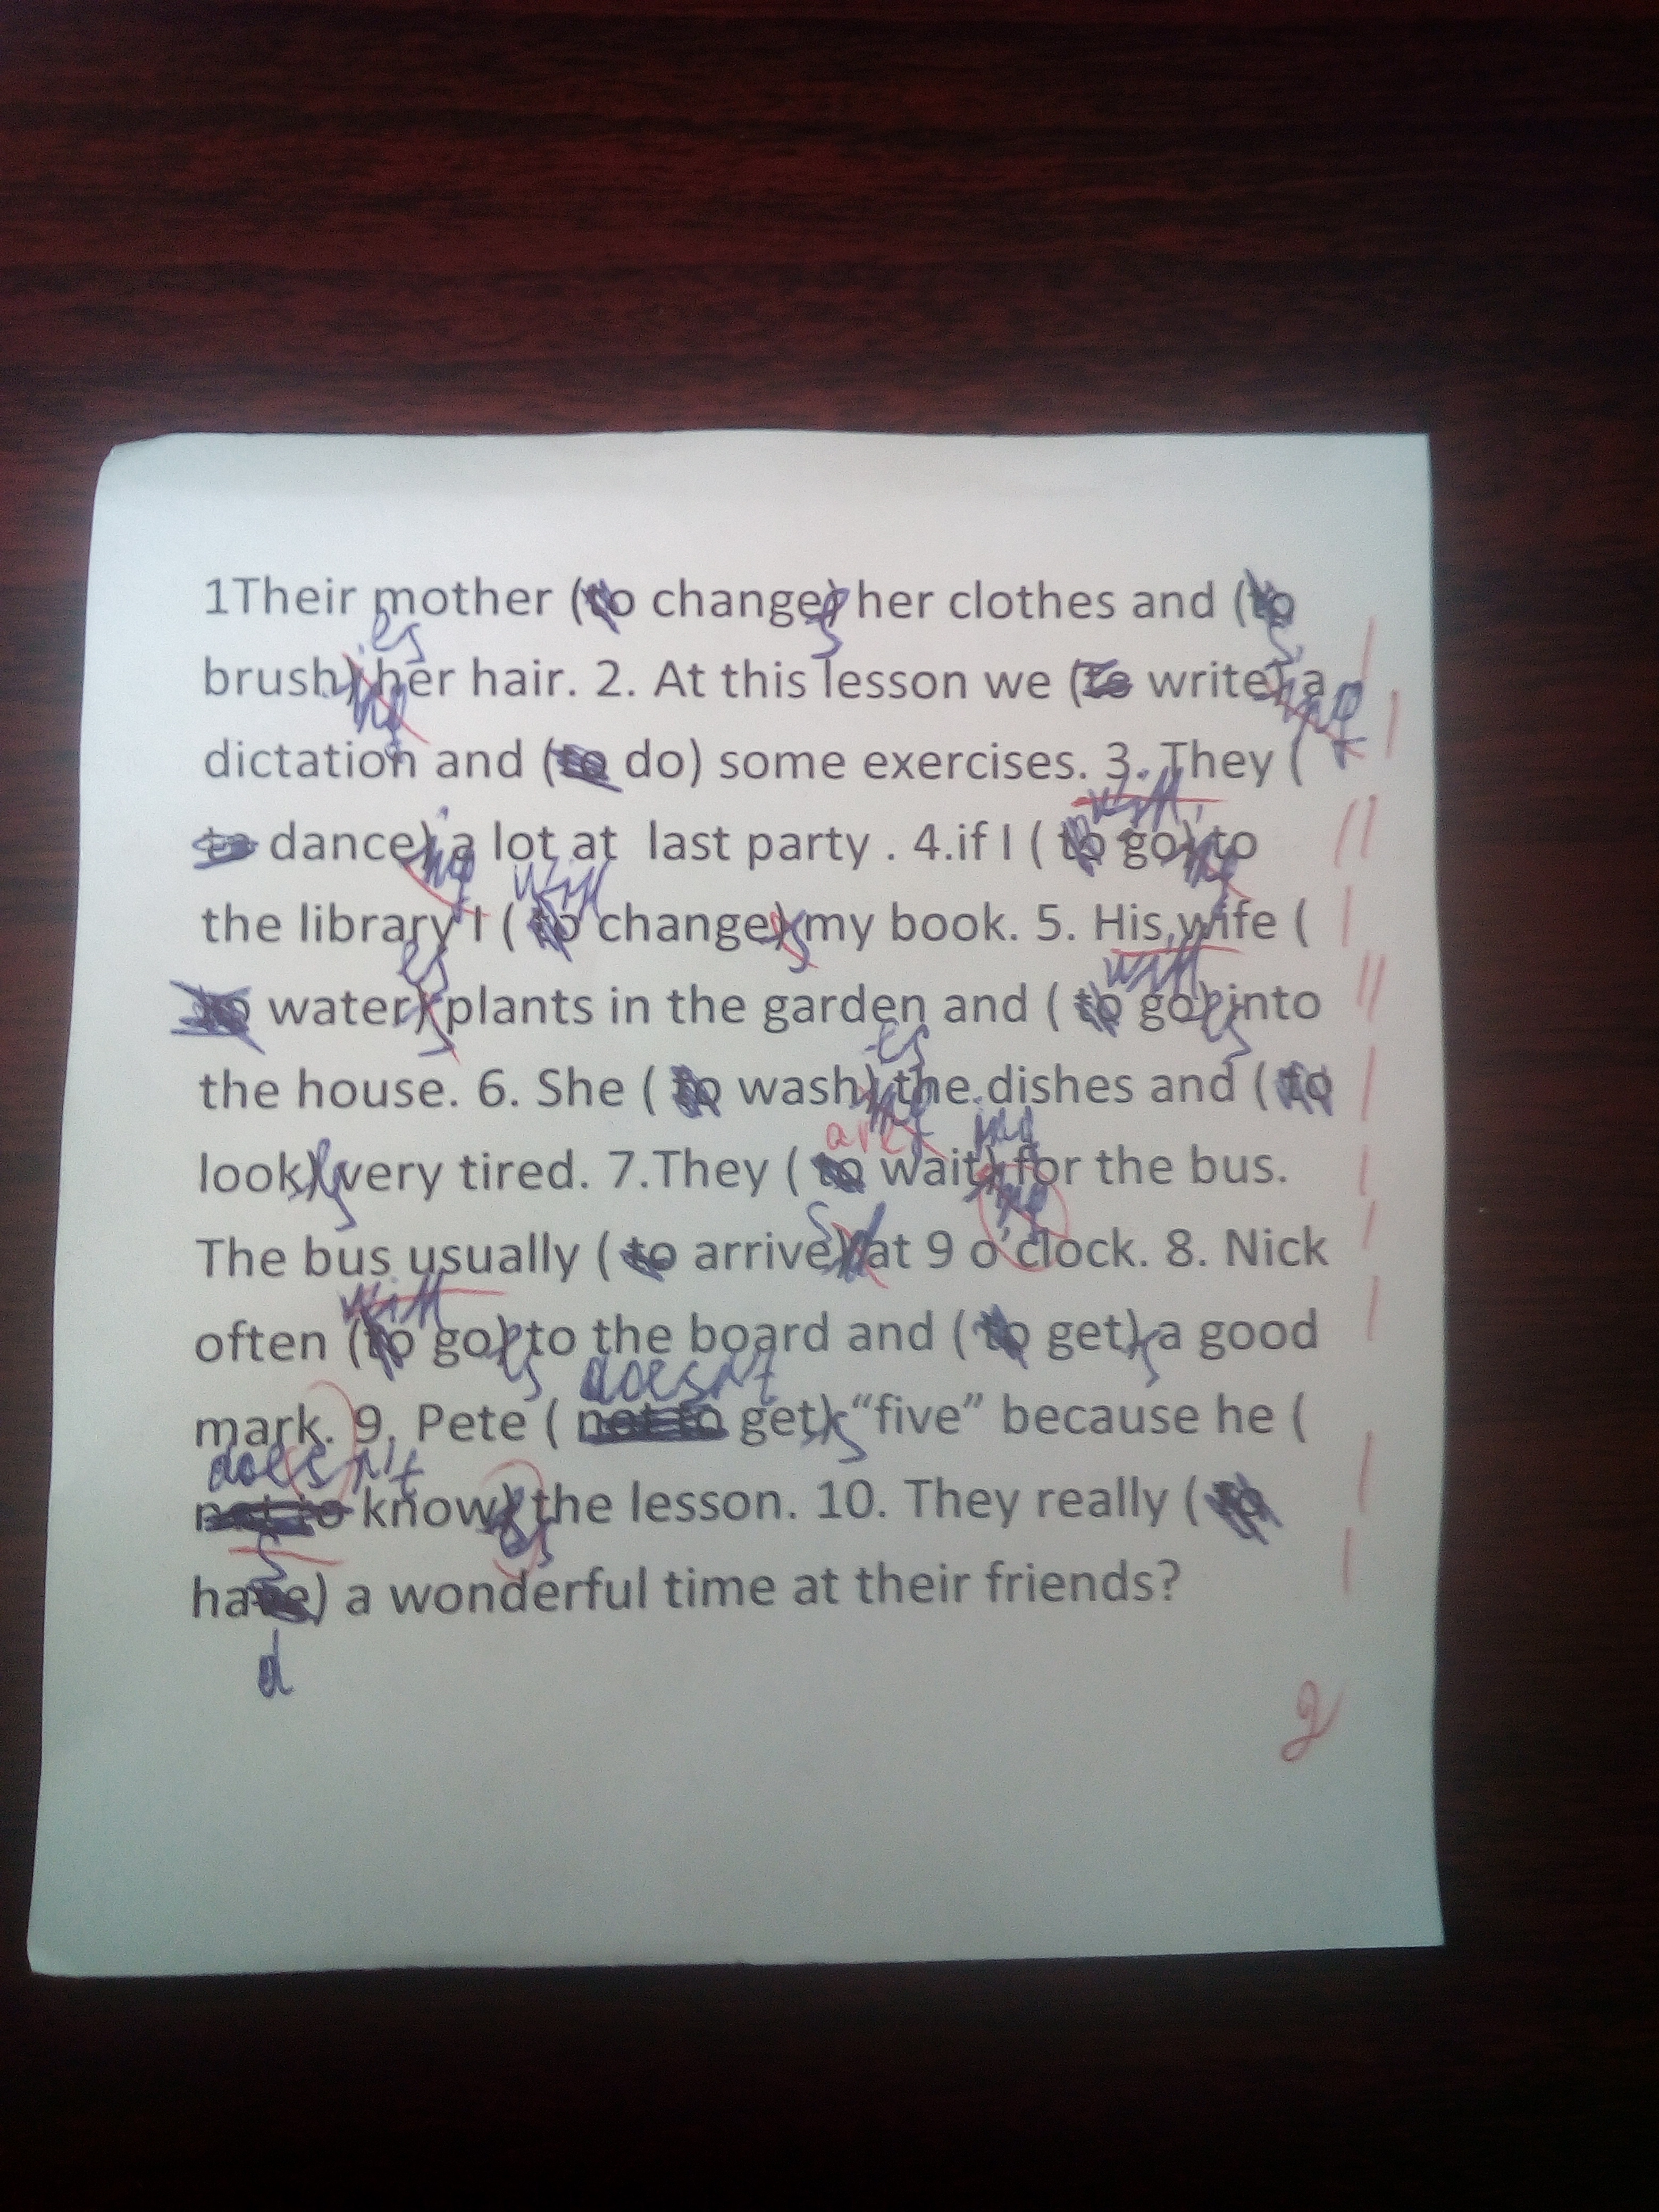 1Their mother (to change) her clothes and (to
es s
brush) her hair. 2. At this lesson we (to write) a
ing
dictation and (to do) some exercises. 3. They (
will
to dance) a lot at last party . 4.if I ( to go) to
ing will ing
the library I ( to change) my book. 5. His wife (
es s will
to water) plants in the garden and ( to go) into
es es
the house. 6. She ( to wash) the dishes and ( to
are ing
look) very tired. 7.They ( to wait) for the bus.
s
The bus usually ( to arrive) at 9 o'clock. 8. Nick
will
often (to go) to the board and ( to get) a good
es doesn't s
mark. 9. Pete ( not to get) "five" because he (
doesn't s
not to know) the lesson. 10. They really ( to
have) a wonderful time at their friends?
d
2